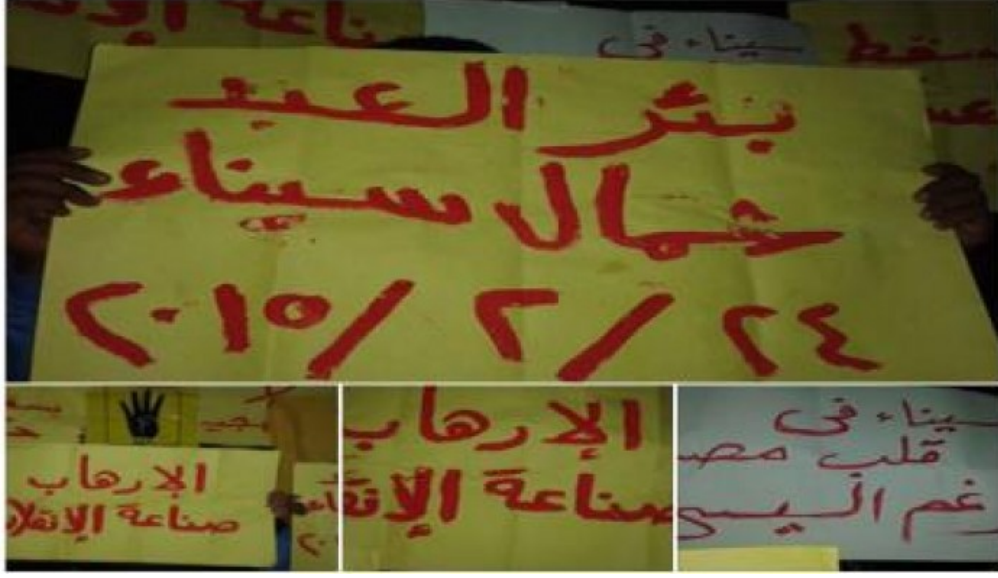 ناعة الإ
سيناء في
يسقط
بئر العبد
شمال سيناء
٢٤ / ٢ / ٢٠١٥
الارهاب
صناعة الإنقلا
الارهاب
صناعة الإنقا
سيناء في
قلب مصر
رغم السيسي